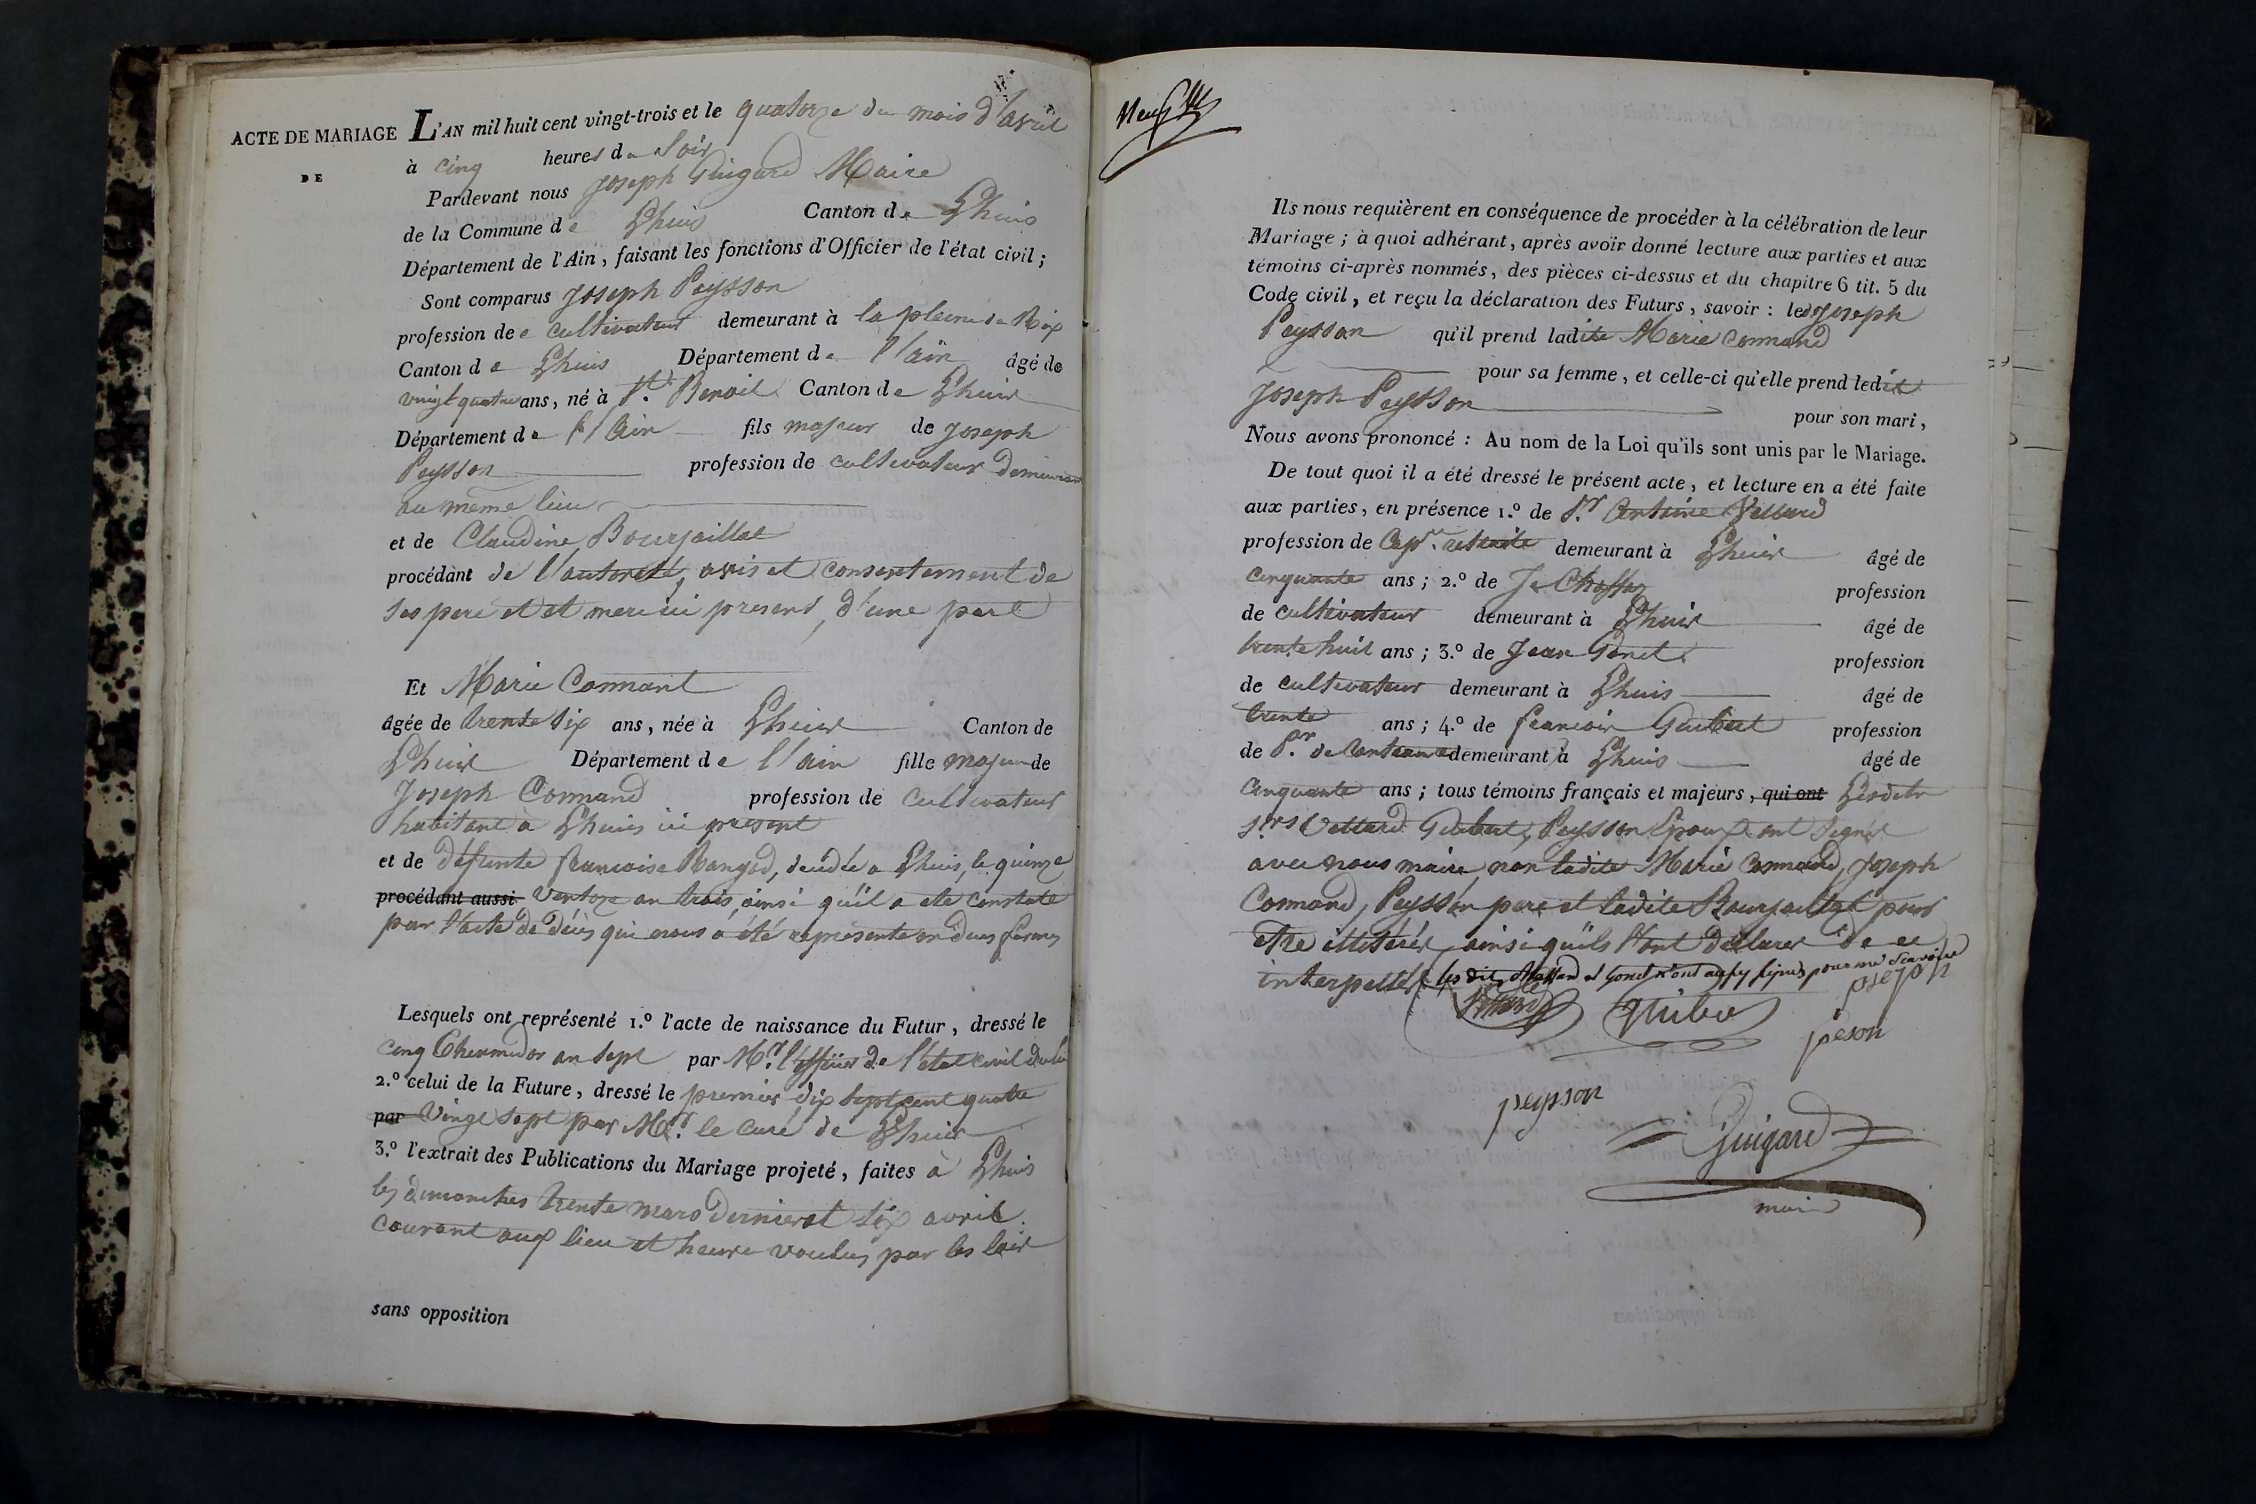 ACTE DE MARIAGE
DE
L'AN mil huit cent vingt-trois et le quatorze du mois d'avril
à cinq heures du Soir
Pardevant nous Joseph Guigard Maire
de la Commune de Lhuis Canton de Lhuis
Département de l'Ain, faisant les fonctions d'Officier de l'état civil ;
Sont comparus Joseph Peysson
profession de cultivateur demeurant à la pleine de Rix
Canton de Lhuis Département de l'ain âgé de
vingt quatre ans, né à St. Benoit Canton de Lhuis
Département de l'Ain fils majeur de Joseph
Peysson profession de cultivateur demeurant
au même lieu
et de Claudine Bourjaillat
procédant de l'autorité, avis et consentement de
ses pere et et mere ici present, d'une part
Et Marie Connant
âgée de trente six ans, née à Lhuis Canton de
Lhuis Département de l'ain fille majeure de
Joseph Connand profession de Cultivateur
habitant a Lhuis ici présent
et de défunte francoise Mangod, décédée a Lhuis, le quinze
procédant aussi Ventoze an trois, ainsi qu'il a eté constaté
par l'acte de décès qui nous a été representé en dues formes
Lesquels ont représenté 1.º l'acte de naissance du Futur, dressé le
cinq thermidor an Sept par Mr. l'officier de l'état civil du lieu
2.º celui de la Future, dressé le premier dix sept cent quatre
par Vingt sept par Mr. le Curé de Lhuis
3.º l'extrait des Publications du Mariage projeté, faites à Lhuis
les dimanches trente mars dernier et six avril
courant aux lieu et heure voulus par les lois
sans opposition
Neuf
Ils nous requièrent en conséquence de procéder à la célébration de leur
Mariage ; à quoi adhérant, après avoir donné lecture aux parties et aux
témoins ci-après nommés, des pièces ci-dessus et du chapitre 6 tit. 5 du
Code civil, et reçu la déclaration des Futurs, savoir : led Joseph
Peysson qu'il prend ladite Marie Connand
pour sa femme, et celle-ci qu'elle prend ledit
Joseph Peysson
pour son mari,
Nous avons prononcé : Au nom de la Loi qu'ils sont unis par le Mariage.
De tout quoi il a été dressé le présent acte, et lecture en a été faite
aux parties, en présence 1.º de Sr. Antoine Vettard
profession de Capne. retraité demeurant à Lhuis âgé de
cinquante ans ; 2.º de profession
de cultivateur demeurant à Lhuis âgé de
trente huit ans ; 3.º de Jean Gonet profession
de cultivateur demeurant à Lhuis âgé de
trente ans ; 4.º de francois Guibert profession
de demeurant à Lhuis âgé de
Cinquante ans ; tous témoins français et majeurs, qui ont Lesdits
Srs Vettard Guibert, Peysson Epoux ont Signés
avec nous maire, non ladite Marie Connand, Joseph
Connand, Peysson pere et ladite Bourjaillat pour
etre illitérés ainsi qu'ils l'ont déclarer de ce
interpellés les dits et Gonet n'ont aussy signés pour ne scavoir
Vettard Guibert joseph
peson
peysson
Guigard
maire